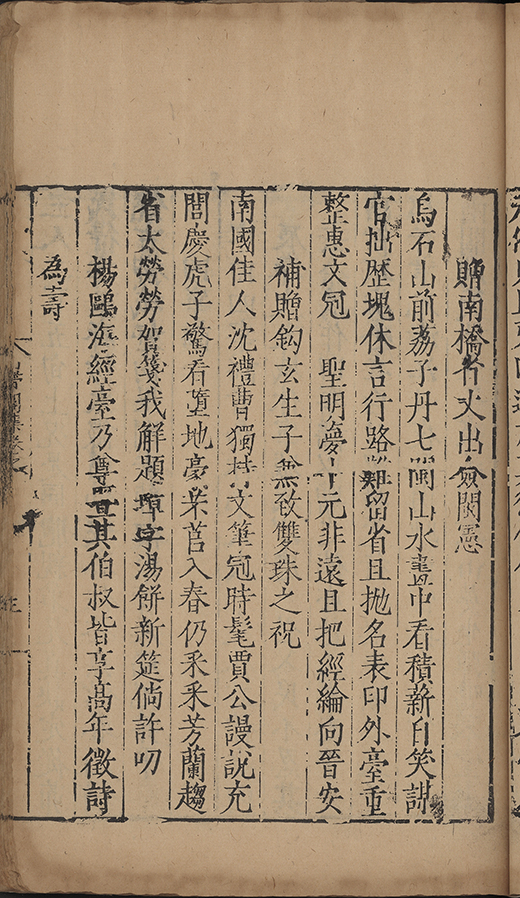 贈南橋省丈出僉閩憲
烏石山前荔子丹七閩山水畫中看積薪自笑謀
官拙歷塊休言行路難留省且拋名表印外臺重
整惠文冠　聖明夢卜元非遠且把經綸向晉安
補贈鈎玄生子兼致雙珠之祝
南國佳人沈禮曹獨持文筆冠時髦賈公謾說充
閭慶虎子驚看墮地豪采苢入春仍采采芳蘭趨
省太勞勞智箋我解題璋字湯餅新筵倘許叨
楊鷗海經臺乃尊暨其伯叔皆享高年徵詩
為壽